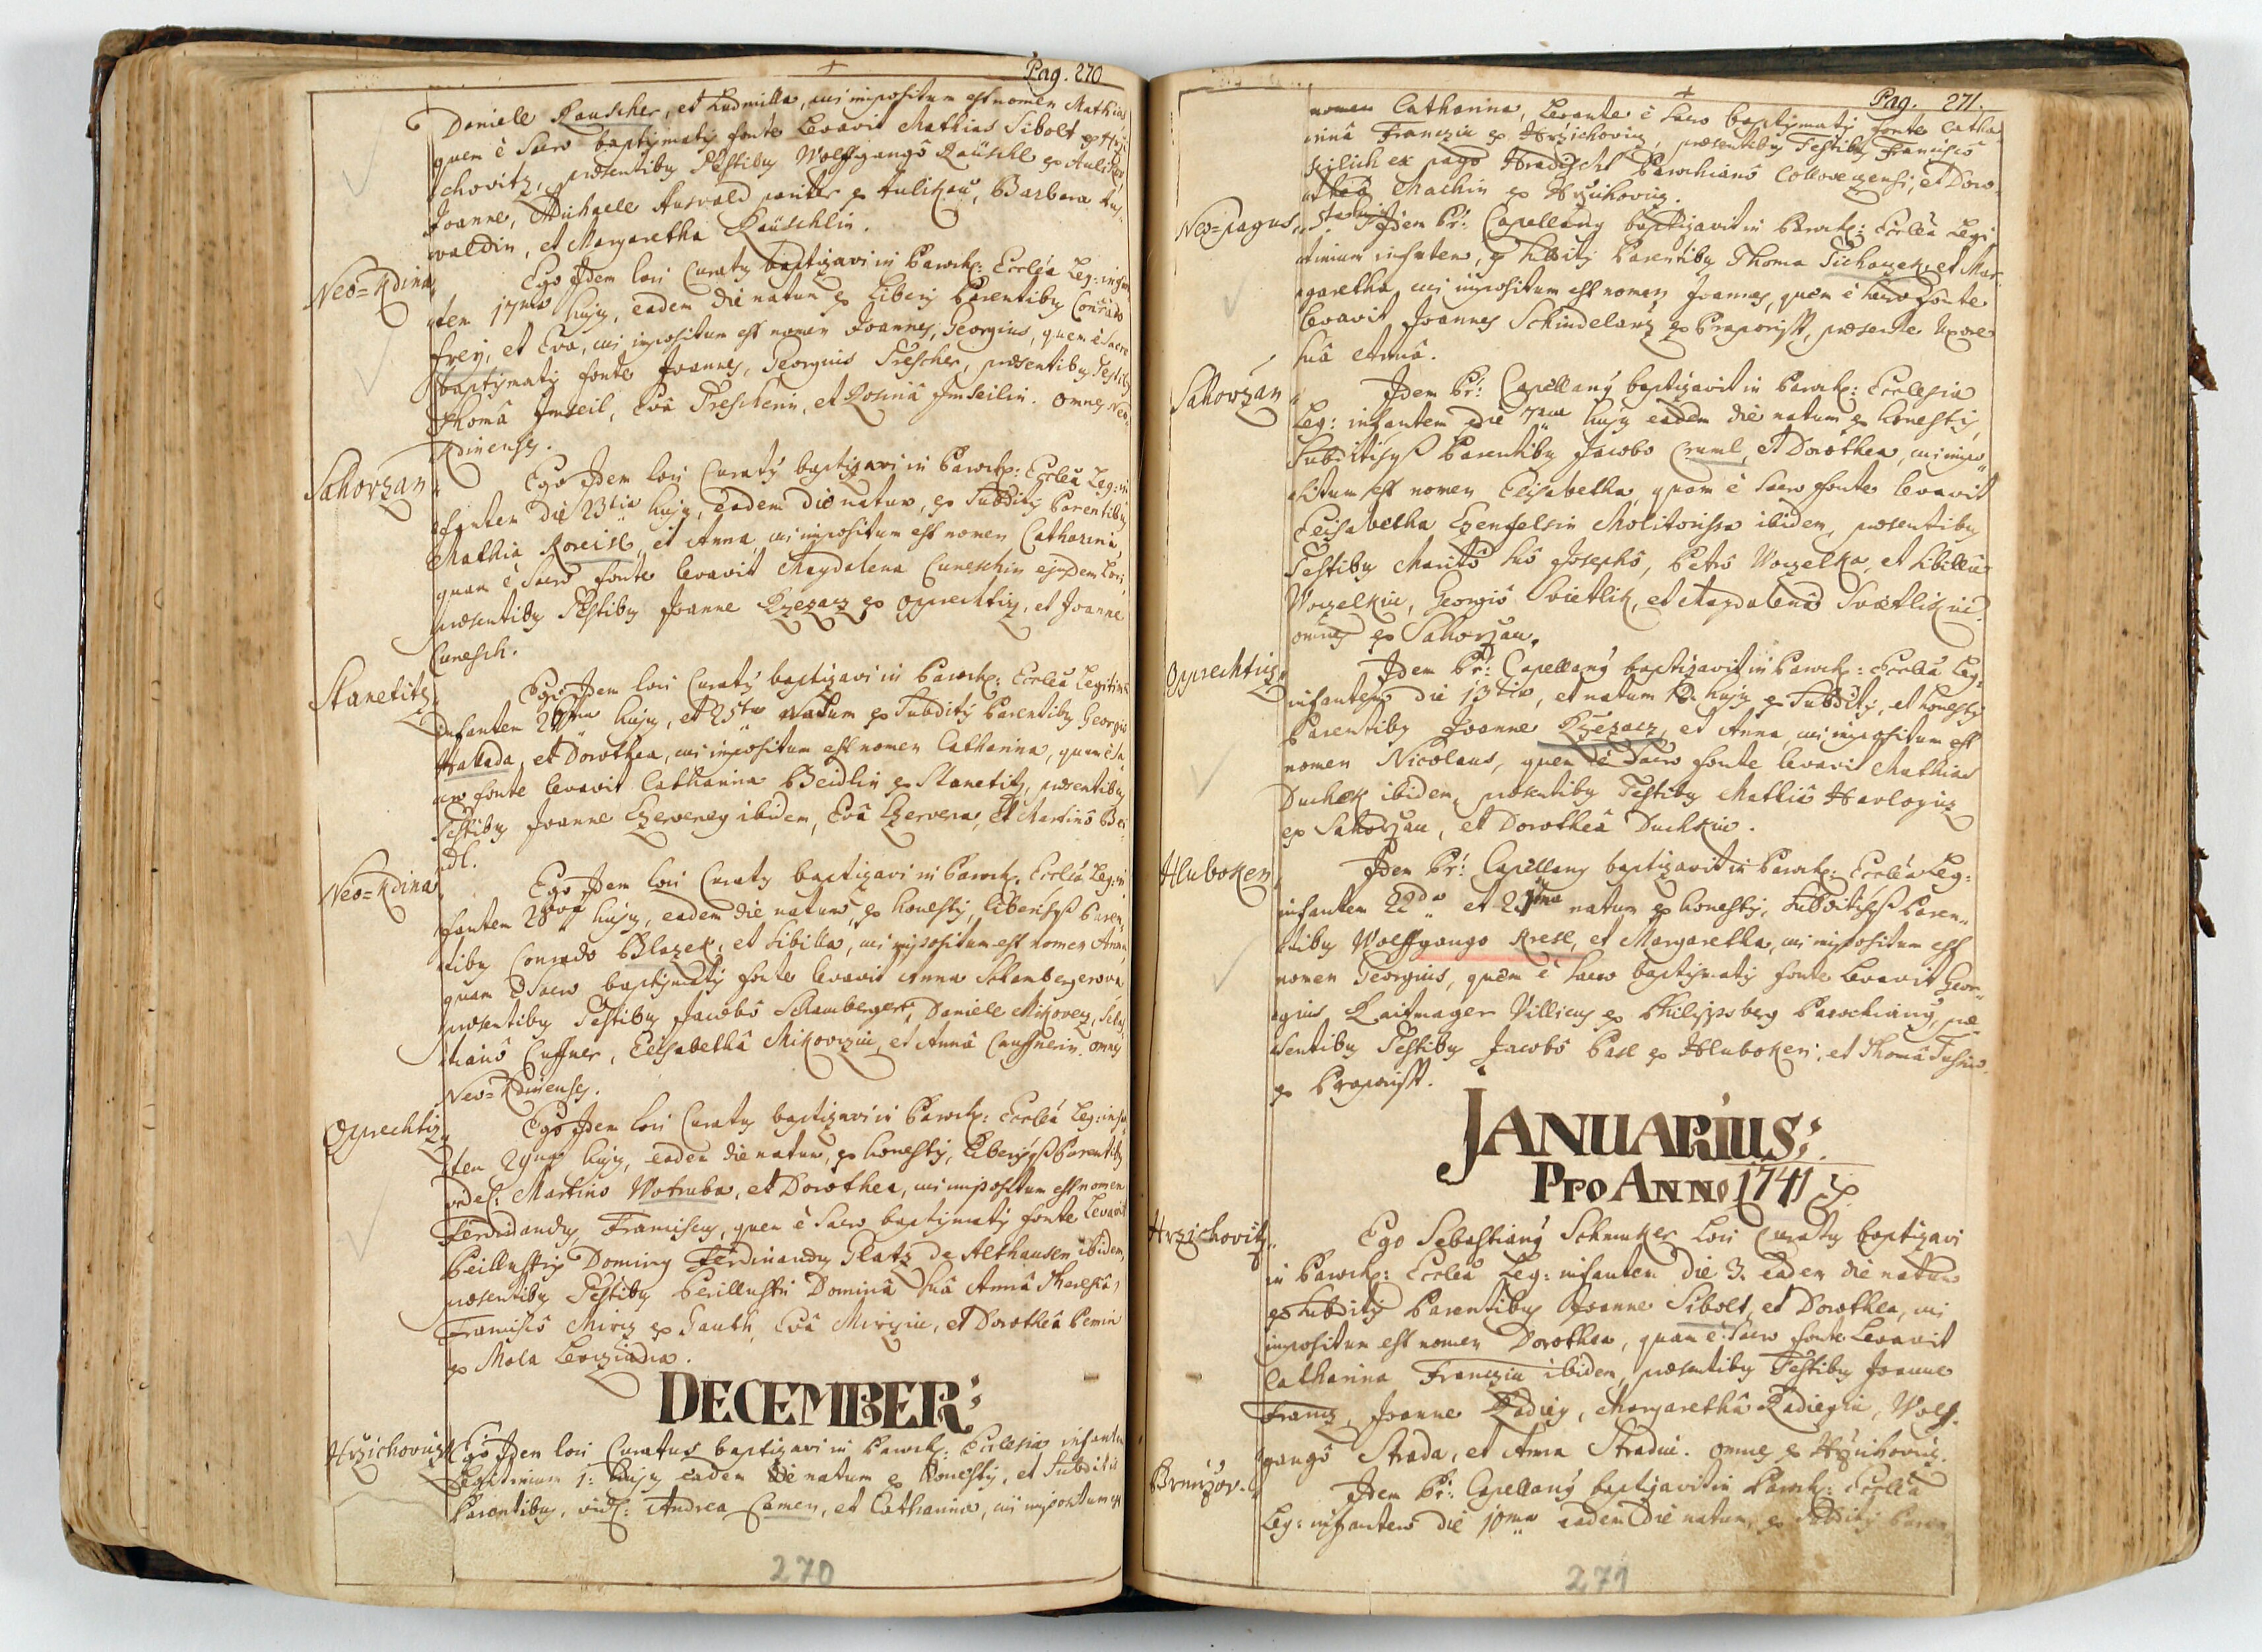 Pag. 270
Daniele Rauscher, et Ludmilla, cui impositum est nomen Mathias
quem è Sacro baptismatis fonte Levavit Mathias Sibolt ex Hrzi-
chovitz, praesentibus Testibus Wolffgangô Raüschl ex Aulikau,
Joanne, Michaele Auswald pariter ex Aulikau, Barbara Aus-
waldin, et Margaretha Raüschlin.
Neo=Kdina
Ego Idem loci Curatus baptizavi in Paroch: Ecclia Leg: infan-
tem 17ma hujus, eadem die natum ex Liberis Parentibus Conrado
Frey, et Eva, cui impositum est nomen Joannes, Georgius, quem è Sacro
baptismatis fonte Joannes, Georgius Trescher, praesentibus Testibus
Thomâ Imseil, Evâ Trescherin, et Rosinâ Imseilin. omnes Neo-
Kdinenses.
Sahorzan
Ego Idem loci Curatus baptizavi in Paroch: Ecclia Leg: in-
fantem die 23tia hujus, eadem die natam, ex Subditis Parentibus
Mathia Koreisl, et Anna, cui impositum est nomen Catharina,
quam è Sacro fonte levavit Magdalena Cuneschin ejusdem loci,
praesentibus Testibus Joanne Rzezacz ex Opprechtiz, et Joanne
Cunesch.
Stanetitz
Ego Idem loci Curatus baptizavi in Paroch: Ecclia Legitim:
Infantem hujus, et 25ta Natum ex Subditis Parentibus Georgio
Halada, et Dorothea, cui impositum est nomen Catharina, quam è Sa-
cro fonte levavit Catharina Beidlin ex Stanetitz, praesentibus
Testibus Joanne Czerveney ibidem, Evâ Czervena, et Martinô Bei-
dl.
Neo=Kdina
Ego Idem loci Curatus baptizavi in Paroch. Ecclia Leg: in-
fantem 28va hujus, eadem die natam, ex honestis, liberisqß Paren-
tibus Conrado Blazek, et Sibilla, cui impositum est nomen Anna,
quam è Sacro baptismatis fonte levavit Anna Schambergerova,
praesentibus Testibus Jacobô Schamberger, Daniele Mikovez,
Cuffner, Elisabethâ Mikovzin, et Annâ Cauffnerin. omnes
Neo=Kdinenses.
Opprechtiz
Ego Idem loci Curatus baptizavi in Paroch: Ecclia Leg: infan-
tem 29na hujus, eadem die natum, ex honestis, Liberisqß Parentibus
videl: Martino Wotruba, et Dorothea, cui impositum est nomen
Ferdinandus, Franciscus, quem è Sacro baptismatis fonte Levavit
Perillustris Dominus Ferdinandus Platz de Althausen ibidem,
praesentibus Testibus Perillustri Dominâ suâ Annâ Theresiâ,
Franciscô Miriz ex Tauth, Evâ Mirizin, et Dorotheâ Pemin
ex Mola Lewziadia.
DECEMBER:
Hrzichoviz
Ego Idem loci Curatus baptizavi in Paroch: Ecclesia infantem
Legitimum 1: hujus eadem die natum ex honestis, et Subditis
Parentibus, videl: Andrea Camen, et Catharina, cui impositum est
270
Pag. 271.
nomen Catharina, Levante è Sacro baptismatis fonte Catha-
rinâ Franczin ex Hrzichoviz, praesentibus Testibus Franciscô
ex pago Hradischt Parochianô Collovezensi, et Doro-
theâ Machin ex Hrzichoviz.
Neo=pagus
5ta hujus Idem Pr: Capellanus baptizavit in Paroch: Ecclia Legi-
timum infantem, ex Subditis Parentibus Thoma Sichaczek, et Mar-
garetha, cui impositum est nomen Joannes, quem è Sacro fonte
levavit Joannes Schindelarz ex Praporischt, praesente Uxore
suâ Annâ.
Sahorzan
Idem Pr: Capellanus baptizavit in Paroch: Ecclesia
Leg: infantem die 7ma hujus eadem die natam ex honestis,
Subditisqß Parentibus Jacobo Cruml, et Dorothea, cui impo-
situm est nomen Elisabetha, quam è Sacro fonte levavit
Elisabetha Czengelsin Molitorissa ibidem, praesentibus
Testibus Maritô suô Josephô, Petrô Woczelka, et Sibillâ
Woczelkin, Georgiô Svietlik, et Magdalenâ Svietlikin
omnes ex Sahorzan.
Opprechtiz
Idem Pr: Capellanus baptizavit in Paroch: Ecclia Leg:
infantem die 13tia, et natum 12 hujus ex Subditis, et honestis
Parentibus Joanne Rzezacz, et Anna, cui impositum est
nomen Nicolaus, quem è Sacro fonte levavit Mathias
Duchek ibidem, praesentibus Testibus Mathiâ Havlogiz
ex Sahorzan, et Dorotheâ Duchkin.
Hluboken
Idem Pr: Capellanus baptizavit in Paroch: Ecclia Leg:
infantem 22da et 21ma natum ex honestis, Subditisqß Paren-
tibus Wolffgango Kresl, et Margaretha, cui impositum est
nomen Georgius, quem è Sacro baptismatis fonte Levavit Geor-
gius Raitmager Villicus ex Philippsberg Parochianus, prae-
sentibus Testibus Jacobô Pasl ex Hluboken, et Thomâ
ex Praporischt.
JANUARIUS:
Pro ANNo 1741
Hrzichovitz
Ego Sebastianus Schmuker Loci Curatus baptizavi
in Paroch: Ecclia Leg: infantem die 3. eadem die natam
ex Subditis Parentibus Joanne Sibolt, et Dorothea, cui
impositum est nomen Dorothea, quam è Sacro fonte Levavit
Catharina Franczin ibidem, praesentibus Testibus Joanne
Francz, Joanne Radieg, Margarethâ Radiegin, Wolf-
gangô Strada, et Anna Stradin. omnes ex Hrzichoviz.
Brnirzov.
Idem Pr: Capellanus baptizavit in Paroch: Ecclia
Leg: infantem die 10ma eadem die natum, ex Subditis Paren-
271